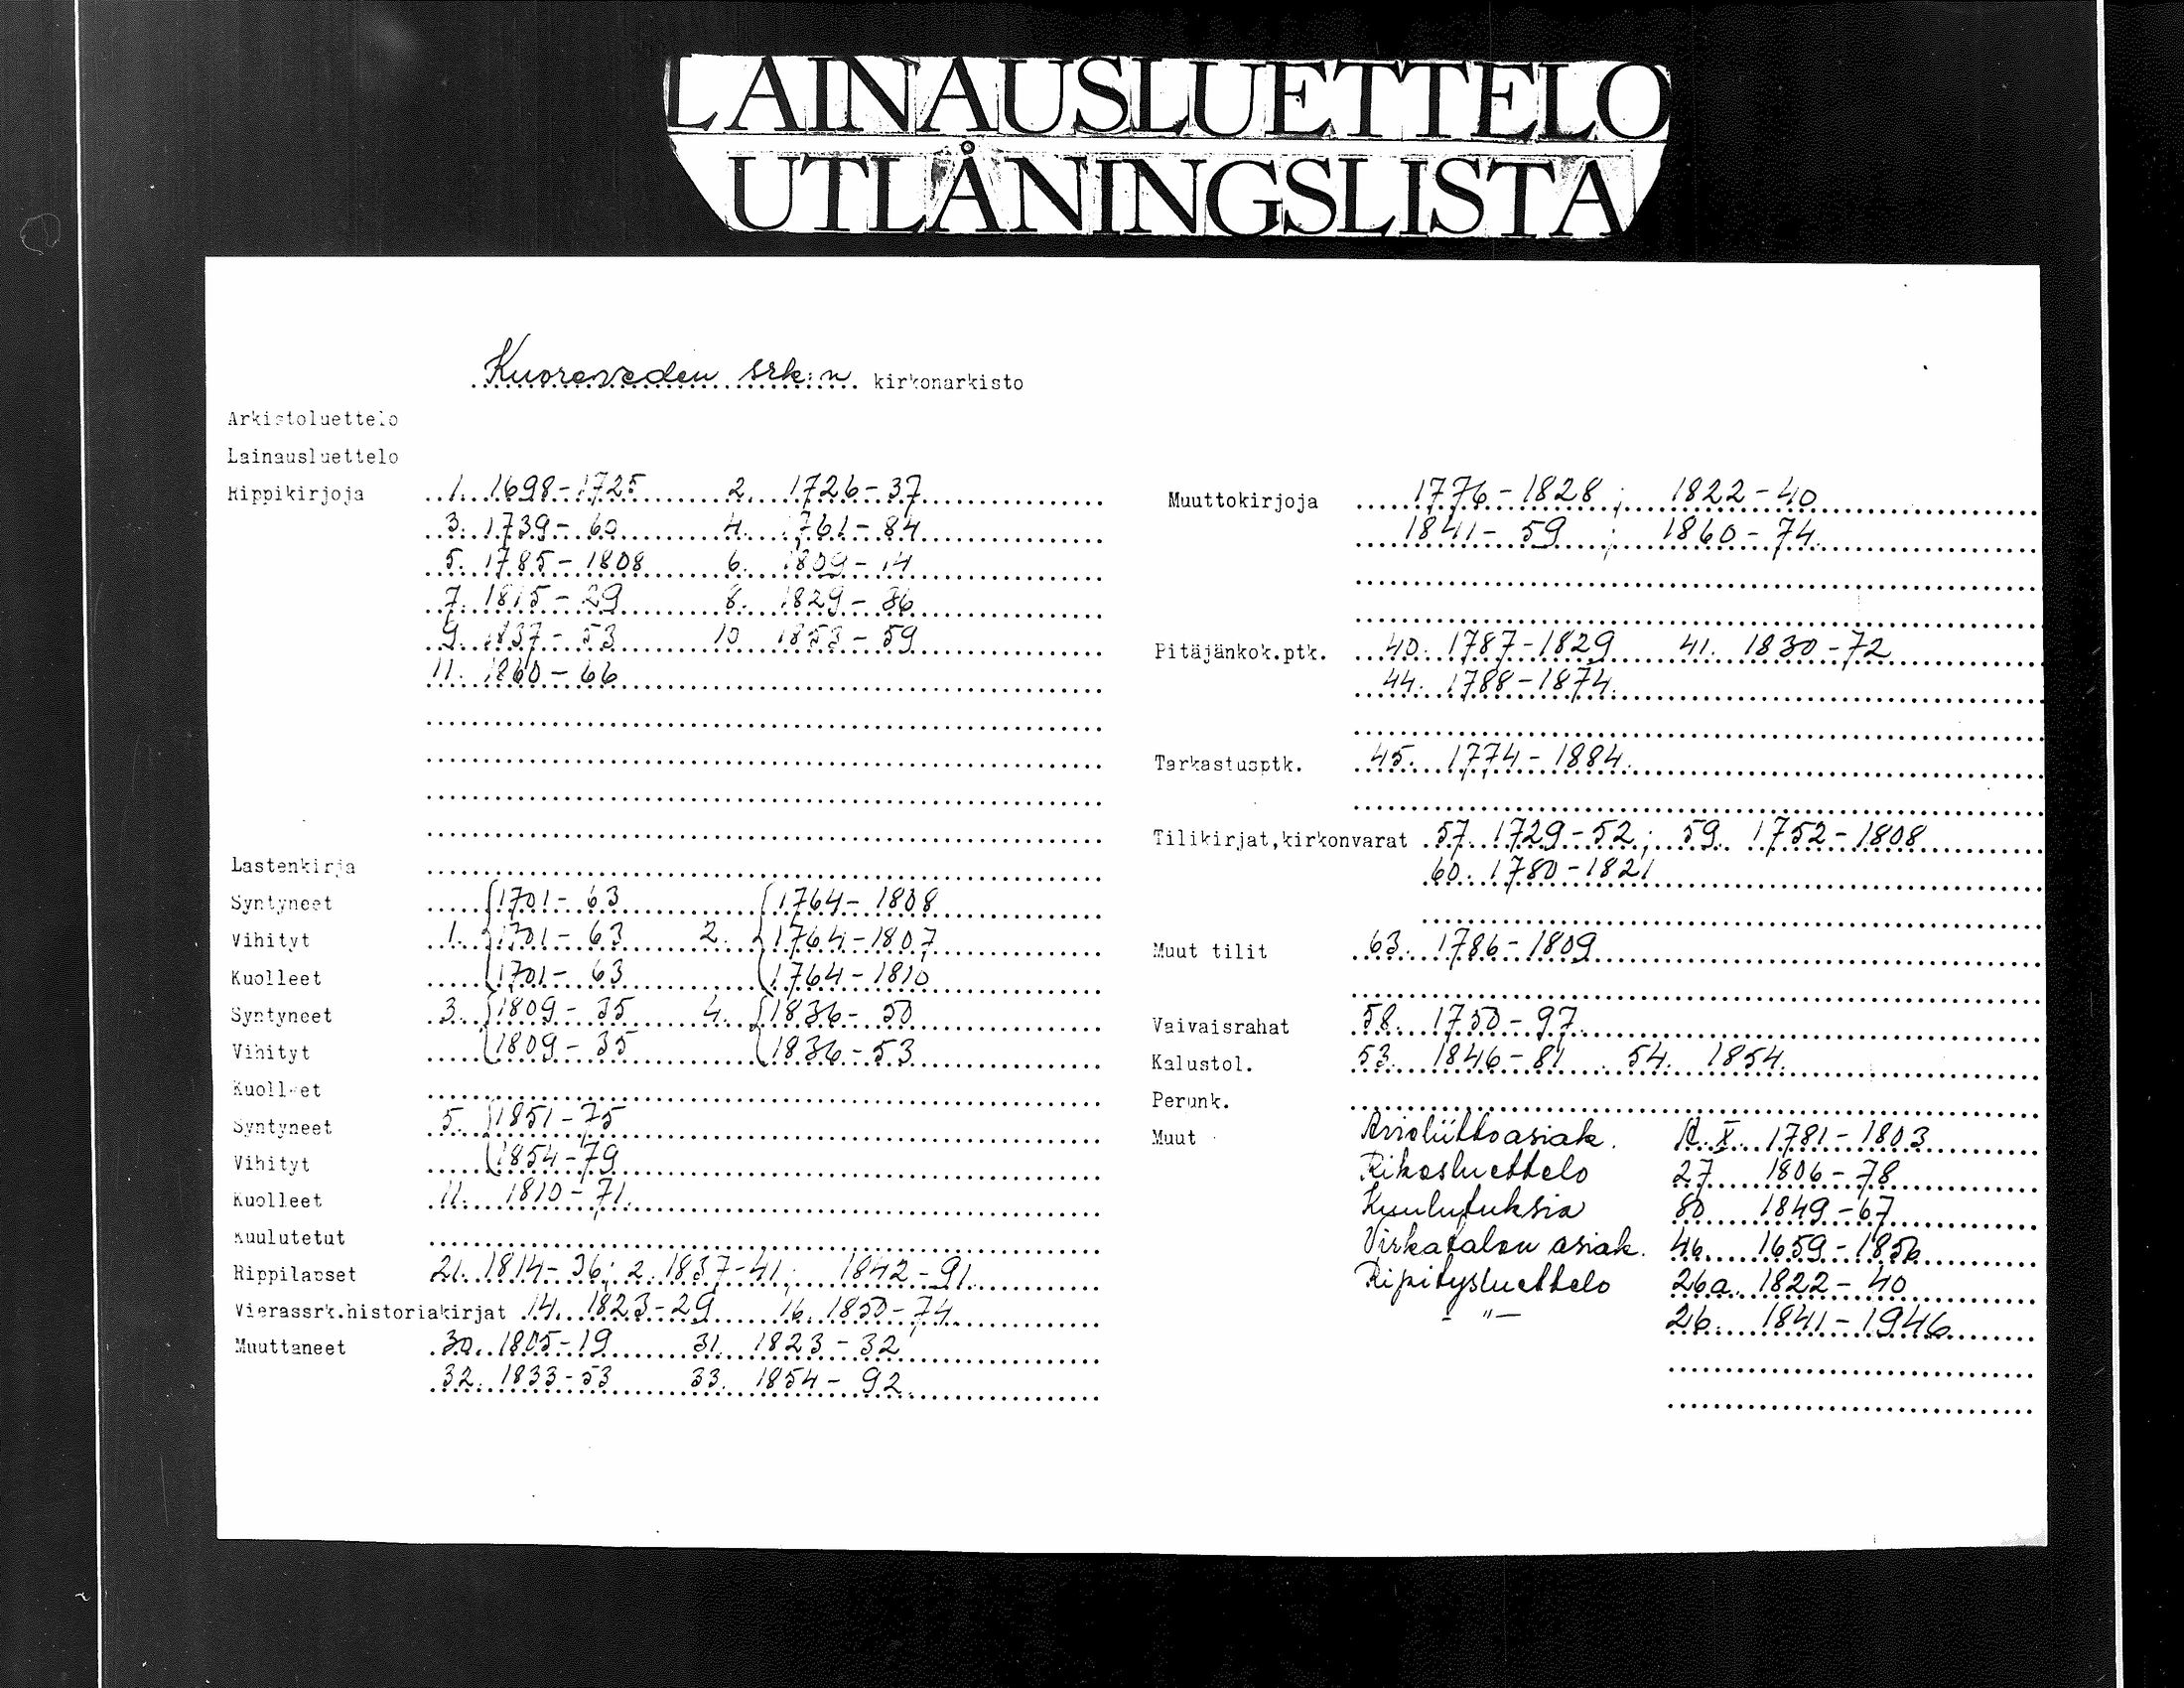 LAINAUSLUETTELO
UTLÅNINGSLISTA
Kuoreveden srk:n kirkonarkisto
Arkistoluettelo
Lainausluettelo
Rippikirjoja 1. 1698-1725 2. 1726-37
3. 1739-60 4. 1761-84
5. 1785-1808 6. 1809-14
7. 1815-29 8. 1829-36
9. 1837-53 10 1853-59
11. 1860-66
Lastenkirja
Syntyneet 1701-63 1764-1808
Vihityt 1. 1701-63 2. 1764-1807
Kuolleet 1701-63 1764-1810
Syntyneet 3. 1809-35 4. 1836-50
Vihityt 1809-35 1836-53
Kuolleet
Syntyneet 5. 1851-75
Vihityt 1854-79
Kuolleet 11. 1810-71.
Kuulutetut
Rippilapset 21. 1814-36; 2. 1837-41; 1842-91.
Vierassrk.historiakirjat 14. 1823-29 16. 1850-74
Muuttaneet 30. 1805-19 31. 1823-32
32. 1833-53 33. 1854-92
Muuttokirjoja 1776-1828; 1822-40
1841-59; 1860-74.
Pitäjänkok.ptk. 40. 1787-1829 41. 1830-72
44. 1788-1874.
Tarkastusptk. 45. 1774-1884.
Tilikirjat,kirkonvarat 57. 1729-52; 59. 1752-1808
60. 1780-1821
Muut tilit 63. 1786-1809
Vaivaisrahat 58. 1750-97.
Kalustol. 53. 1846-81 54. 1854.
Perunk.
Muut Avioliittoasiak. A. X. 1781-1803
Rikosluettelo 27 1806-78
Kuulutuksia 80 1849-67
Virkatalon asiak. 46. 1659-1856
Ripitysluettelo 26a. 1822-40
- " - 26. 1841-1946